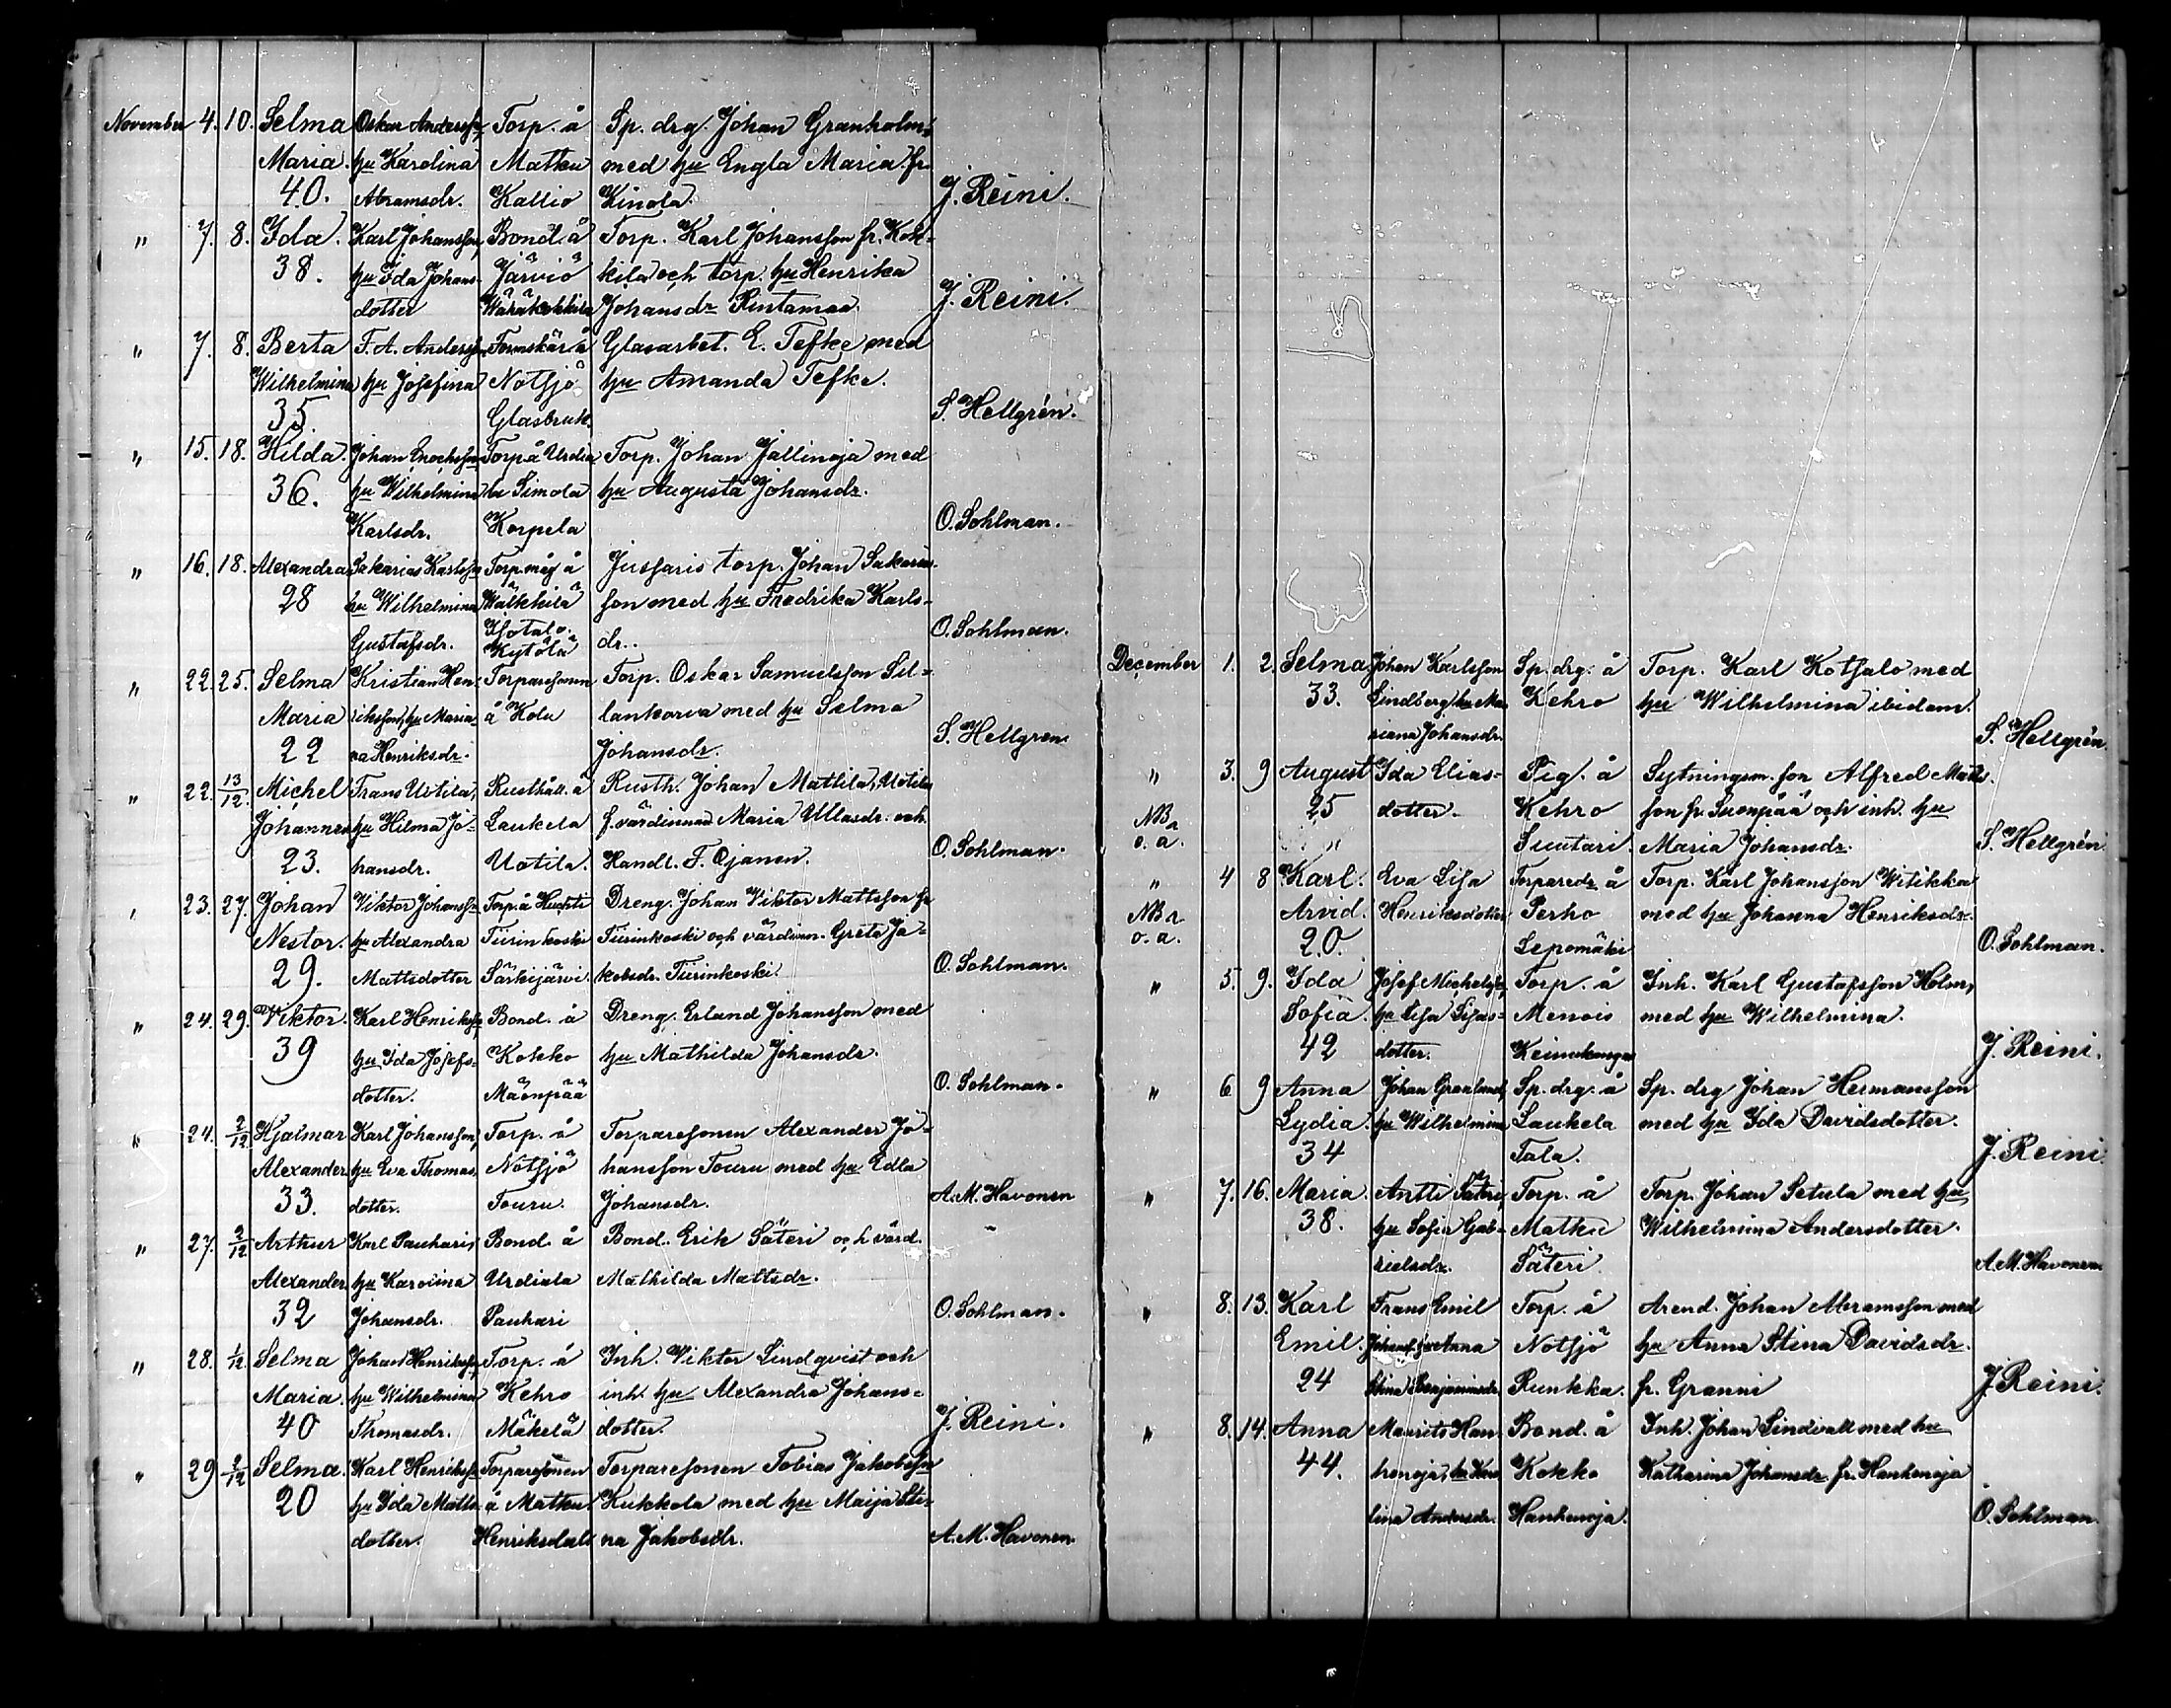 November 4. 10. Selma Oskar Anderss:, Torp. å Sp. drg. Johan Granholm
Maria. hu Karolina Matku med hu Engla Maria fr.
40. Abramsdr. Kallio Kinola. J. Reini.
" 7. 8. Ida. Karl Johansson, Bond. å Torp. Karl Johansson fr. Kok=
38. hu Ida Johans- Järviö kila och torp. hu Henrika
dotter Wähäkokkila Johansdr Rintamaa. J. Reini.
" 7. 8. Berta F. A. Anderss Formskär. å Glasarbet. E. Tefke med
Wilhelmina hu Josefina Notsjö hu Amanda Tefke.
35 Glasbruk. S. Hellgrén.
" 15. 18. Hilda. Johan Enochss Torp. å Urdia Torp. Johan Jallinoja med
36. hu Wilhelmina la Simola hu Augusta Johansdr.
Karlsdr. Korpela O. Sohlman.
" 16. 18. Alexandra Sakarias Karlss Torp. måg å Jussaris torp. Johan Sakarias-
28 hu Wilhelmina Wälkkilä son med hu Fredrika Karls-
Gustafsdr. Isotalo- Kytölä dr.. O. Sohlman.
" 22. 25. Selma Kristian Hen- Torparesonen Torp. Oskar Samuelsson Sil=
Maria riksson, hu Maria å Kolu lankorva med hu Selma
22 na Henriksdr. Johansdr. S. Hellgren.
" 22. 13/12. Michel Frans Uotila, Rusthåll. å Rusth. Johan Mattila, Uotila
Johannes hu Hilma Jo- Laukela f. värdinnan Maria Ullasdr. och
23. hansdr. Uotila. Handl. F. Ojanen. O. Sohlman.
" 23. 27. Johan Viktor Johanss Torp. å Huhti Dreng. Johan Viktor Mattsson fr
Nestor. hu Alexandra Tiirinkoski Tiirinkoski och värdinn. Greta Ja=
29. Mattsdotter Särkijärvi. kobsdr. Tiirinkoski. O. Sohlman.
" 24. 29. Viktor. Karl Henrikss, Bond. å Dreng. Erland Johansson med
39 hu Ida Josefs- Kokko hu Mathilda Johansdr.
dotter. Mäenpää O. Sohlman.
" 24. 2/12 Hjalmar Karl Johansson, Torp. å Torparesonen Alexander Jo=
Alexander hu Eva Thomas Notsjö hansson Touru med hu Edla
33. dotter. Touru. Johansdr. A. M. Havonen
" 27. 2/12 Arthur Karl Pauhari, Bond. å Bond. Erik Säteri och värd.
Alexander hu Karolina Urdiala Mathilda Mattsdr.
32 Johansdr. Pauhari O. Sohlman.
" 28. 1/12. Selma Johan Henrikss, Torp. å Inh. Viktor Lindqvist och
Maria. hu Wilhelmina Kehro inh. hu Alexandra Johans=
40 Thomasdr. Mäkelä dotter. J. Reini.
" 29 2/12 Selma. Karl Henrikss Torparesonen Torparesonen Tobias Jakobss
20 hu Ida Matts- å Matku. Kukkola med hu Maija Sti-
dotter. Henriksdal na Jakobsdr. A. M. Havonen.
December 1. 2 Selma Johan Karlsson Sp. drg. å Torp. Karl Kotsalo med
33. Lindberg, hu Ma- Kehro hu Wilhelmina ibidem.
riana Johansdr. S. Hellgrén.
" 3. 9 August Ida Elias- Pig. å Sytningsm. son Alfred Matts-
NB 25 dotter. Kehro son fr. Suonpää och inh. hu
o. ä. Suutari. Maria Johansdr. S. Hellgrén
" 4 8 Karl. Eva Lisa Torparedr å Torp. Karl Johansson Witikka
NB Arvid. Henriksdotter Perho med hu Johanna Henriksdr.
o. ä. 20. Lepomäki O. Sohlman.
" 5. 9. Ida Josef Michels, Torp. å Inh. Karl Gustafsson Holm,
Sofia. hu Lisa Lisas- Menois med hu Wilhelmina.
42 dotter. Keinukangas J. Reini.
" 6 9 Anna Johan Granlund, Sp. drg. å Sp. drg Johan Hermansson
Lydia. hu Wilhelmina Laukela med hu Ida Davidsdotter.
34 Tala. J. Reini.
" 7. 16. Maria. Antti Säteri, Torp. å Torp. Johan Setula med hu
38. hu Sofia Gab- Matku Wilhelmina Andersdotter.
rielsdr. Säteri. A. M. Havonen
" 8. 13. Karl Frans Emil Torp. å Arend. Johan Abramsson med
Emil. Johanss. hu Anna Notsjö hu Anna Stina Davidsdr.
24 Stina Benjaminsdr. Runkka. fr. Granni J. Reini.
" 8. 14. Anna Maurits Han- Bond. å Inh. Johan Lindvall med hu
44. henoja, hu Karo Kokko Katharina Johansdr fr. Hanhenoja
lina Andersdr. Hanhenoja. O. Sohlman.